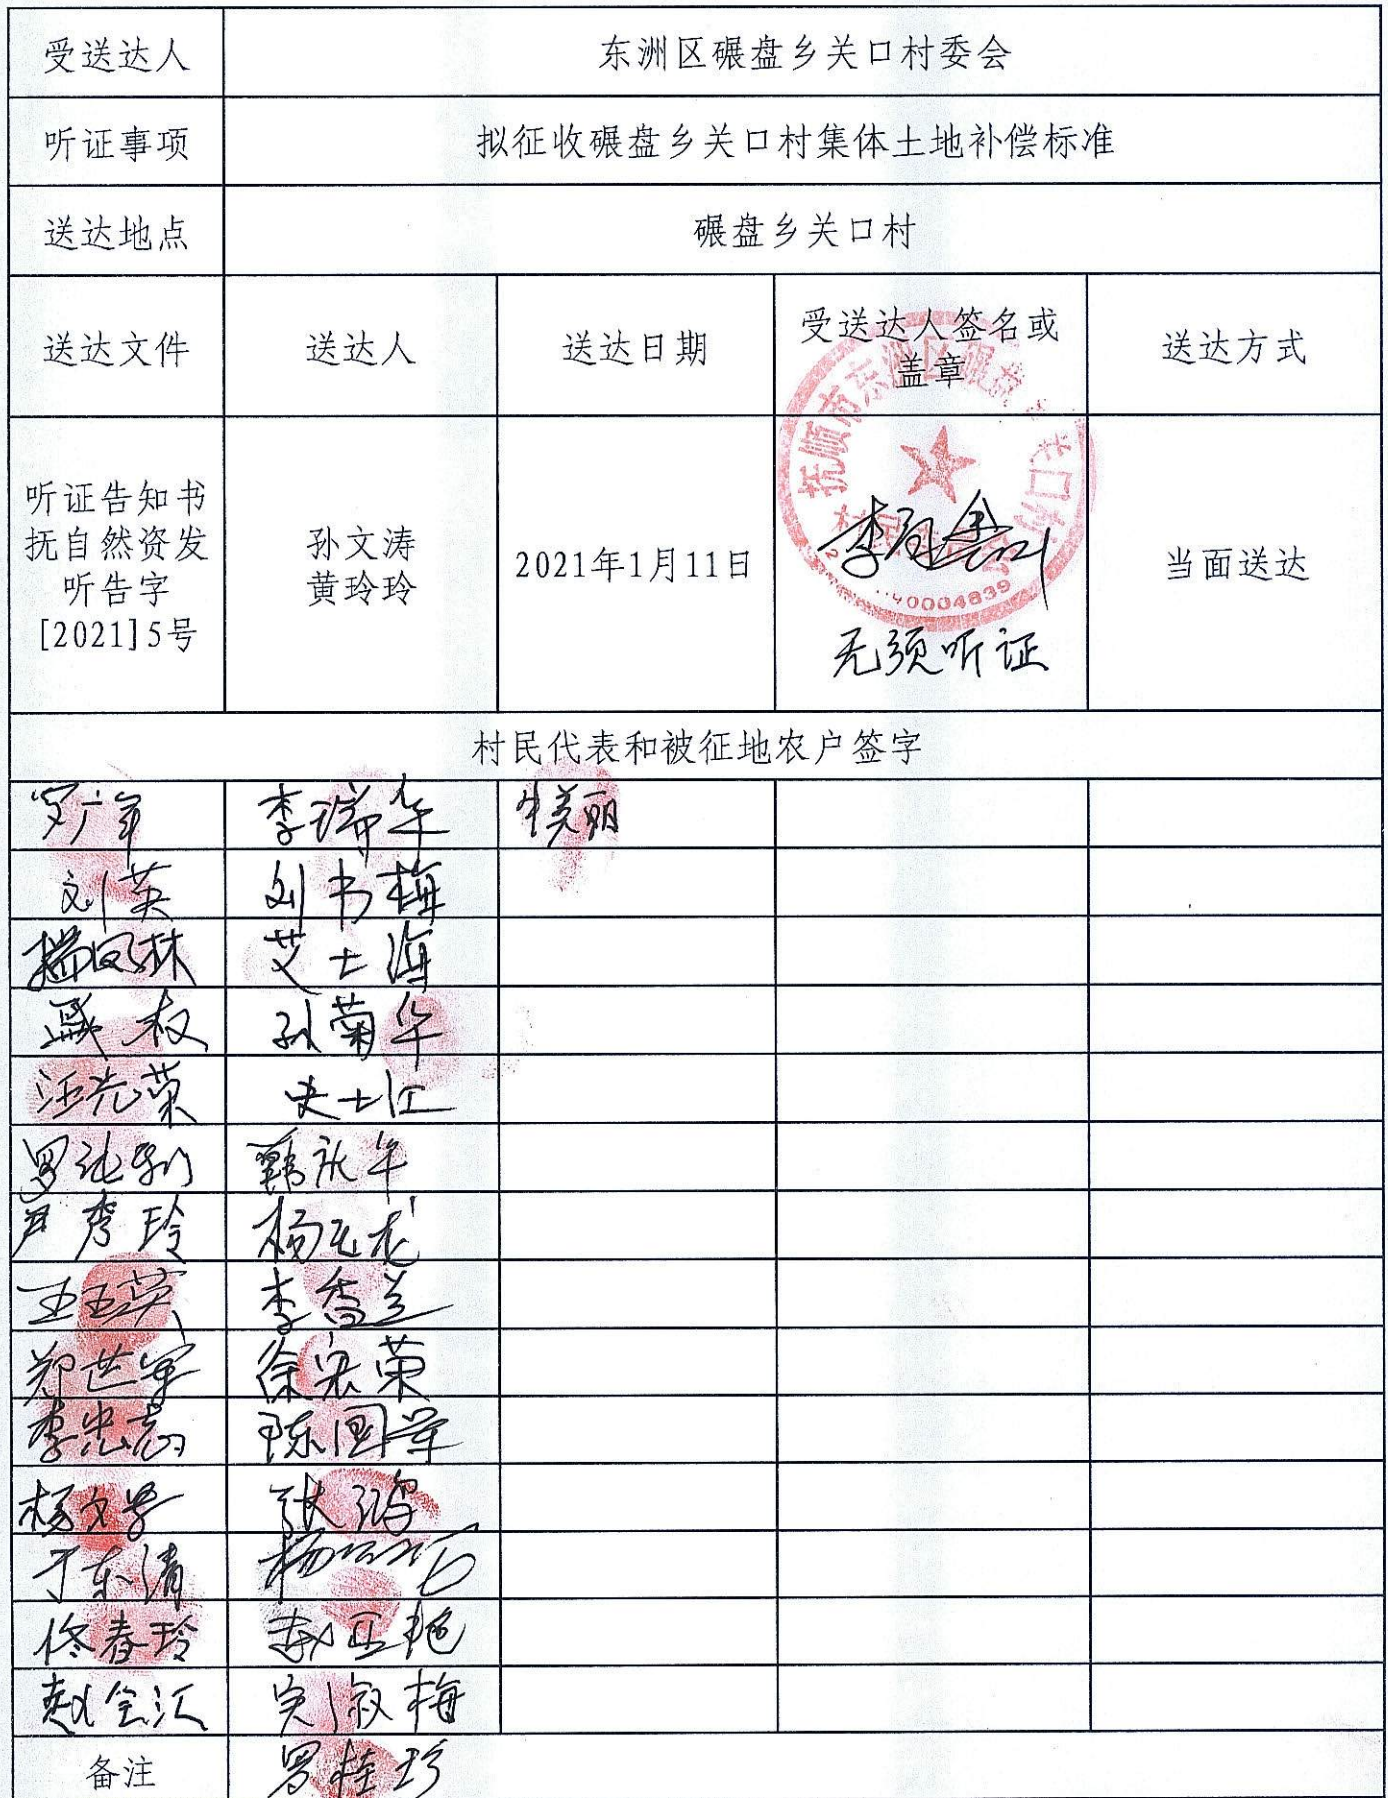 受送达人 东洲区碾盘乡关口村委会
听证事项 拟征收碾盘乡关口村集体土地补偿标准
送达地点 碾盘乡关口村
送达文件 送达人 送达日期 受送达人签名或
盖章 送达方式
听证告知书
抚自然资发
听告字
[2021]5号
孙文涛
黄玲玲
2021年1月11日
抚顺市东洲区碾盘乡关口村
村民委员会
40004839
无须听证
当面送达
村民代表和被征地农户签字
李瑞华
刘英 刘书梅
艾士海
孙菊华
汪光荣 史士江
杨玉龙
王玉英 李香兰
郑世军 徐宏荣
李忠志 陈国学
张鸿
于东清
佟春玲 赵亚艳
吴淑梅
备注 罗桂珍